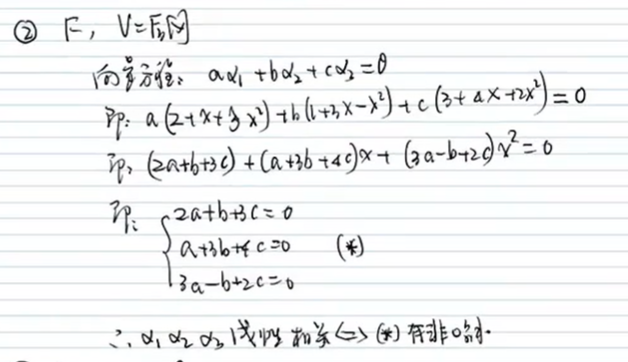 ② F, V=F₃[x]
向量方程: aα₁+bα₂+cα₃=θ
即: a(2+x+3x²)+b(1+3x-x²)+c(3+4x+2x²)=0
即, (2a+b+3c)+(a+3b+4c)x+(3a-b+2c)x²=0
即: 2a+b+3c=0
a+3b+4c=0 (*)
3a-b+2c=0
∴ α₁ α₂ α₃ 线性相关 <=> (*) 有非0解.